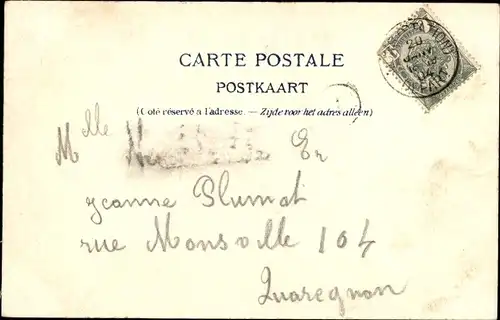 CARTE POSTALE
POSTKAART
(Côté réservé a l'adresse. — Zijde voor het adres alleen)
Mlle
Jeanne Plumat
rue Monsville 104
Quaregnon